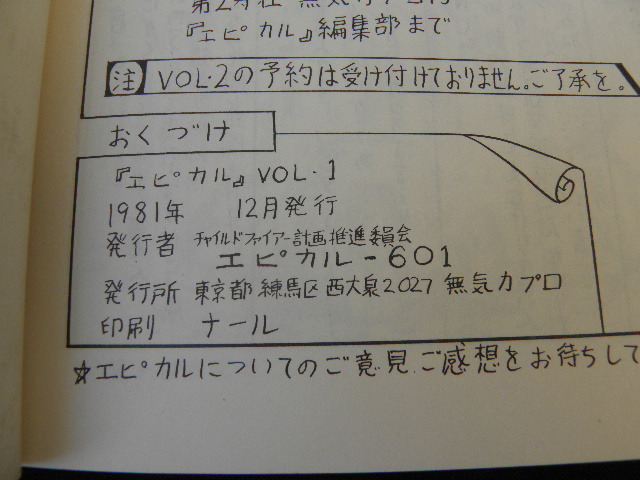 『エピカル』編集部まで
注 VOL.2の予約は受け付けておりません。ご了承を。
おくづけ
『エピカル』VOL.1
1981年 12月発行
発行者 チャイルドファイアー計画推進委員会
エピカル-601
発行所 東京都練馬区西大泉2027 無気力プロ
印刷 ナール
☆エピカルについてのご意見、ご感想をお待ちして